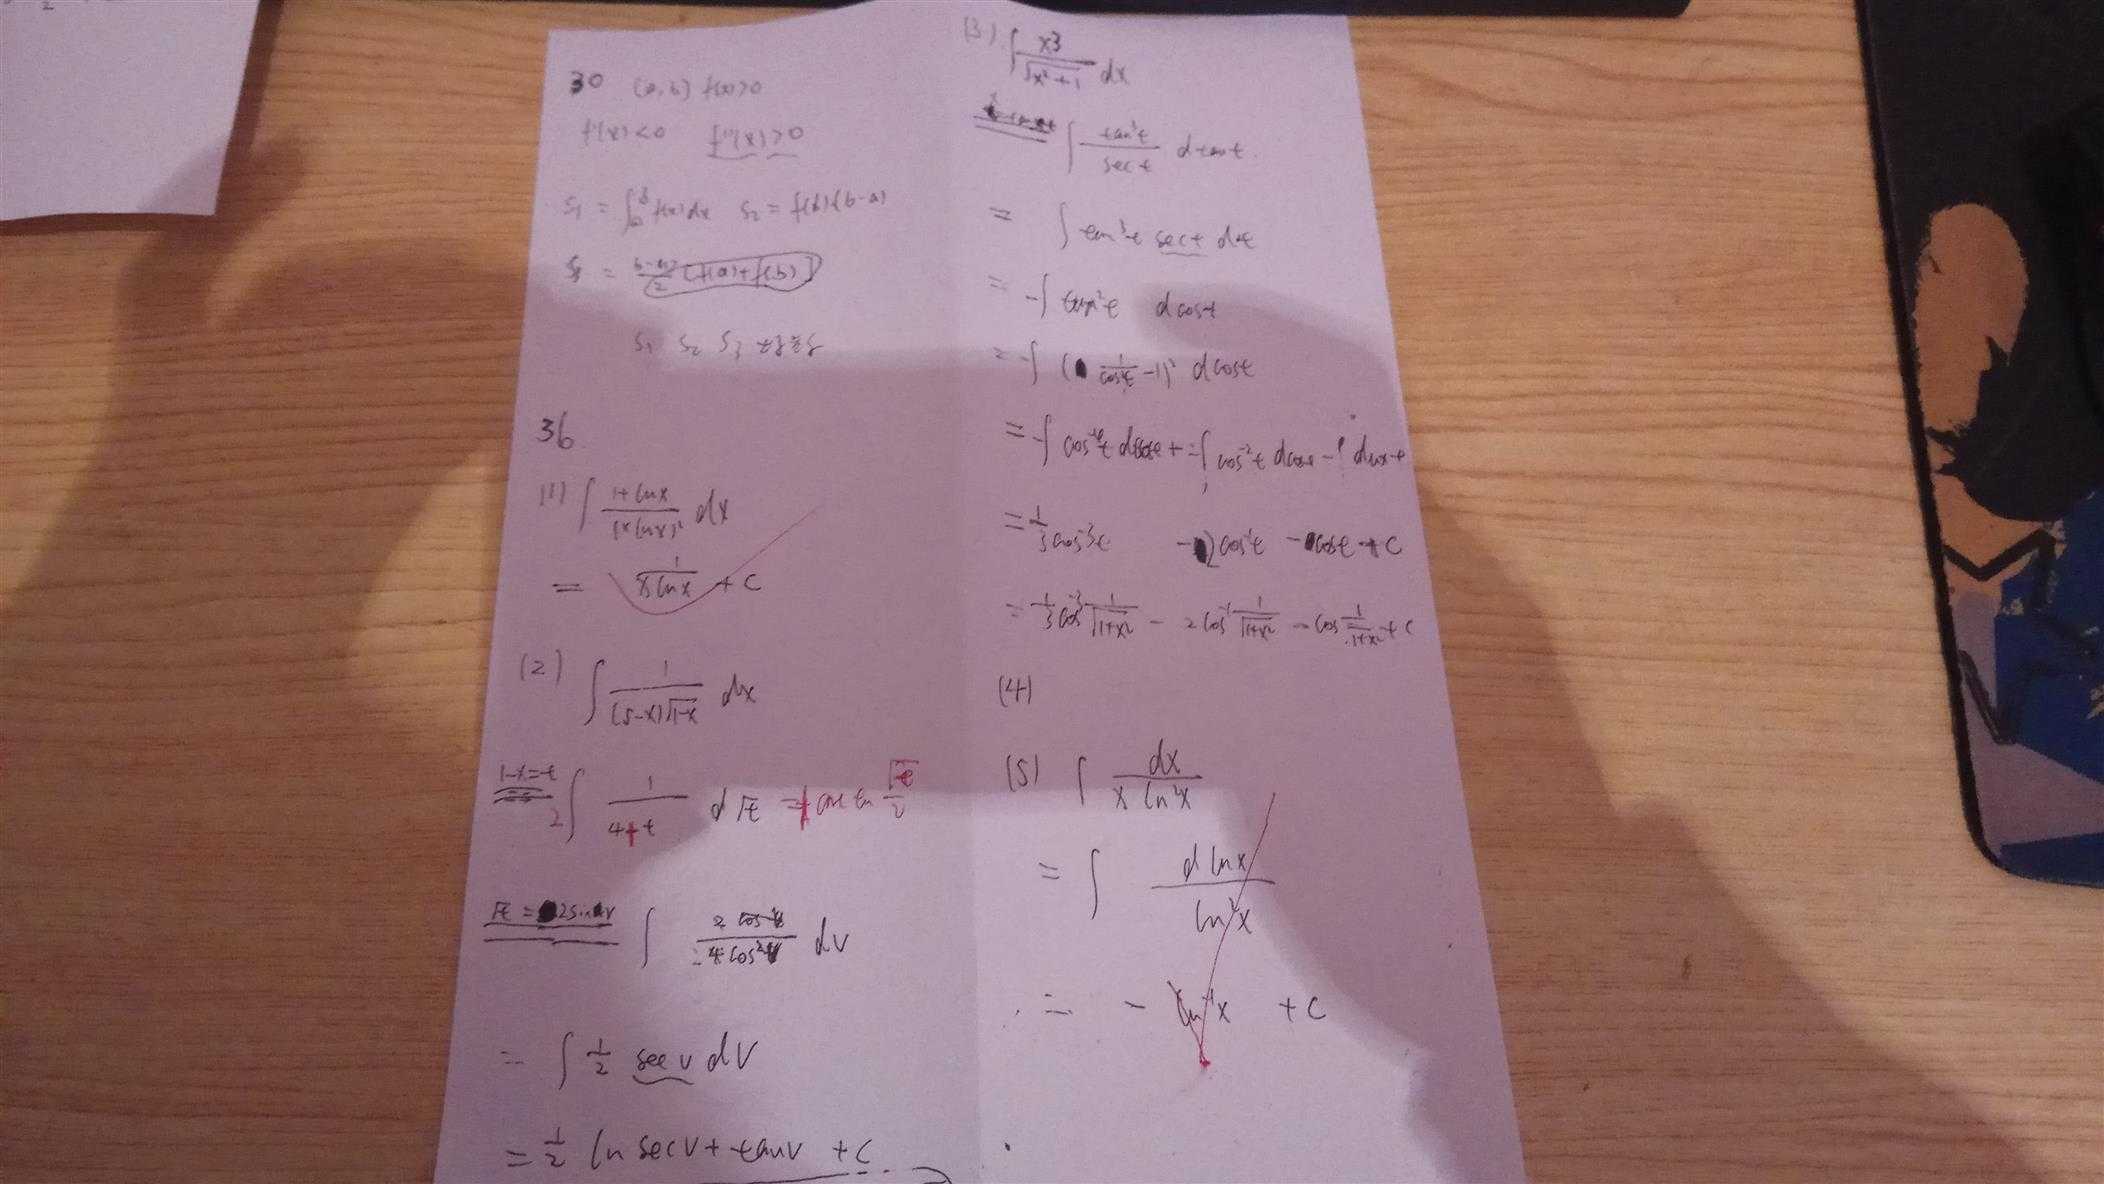 30 (a,b) f(x)>0
f'(x)<0 f''(x)>0
S₁ = ∫ₐᵇ f(x)dx S₂ = f(b)(b-a)
S₃ = (b-a)/2 [f(a)+f(b)]
S₁ S₂ S₃
36
(1) ∫ (1+lnx)/(x lnx)² dx
= 1/(x lnx) + C
(2) ∫ 1/((5-x)√(1-x)) dx
1-x=t 2∫ 1/(4+t) d√t = arctan √t/2
√t = 2sinv ∫ 2cosv/4cos²v dv
= ∫ 1/2 secv dv
= 1/2 ln secv + tanv + C
(3) ∫ x3/√(x²+1) dx
∫ tan³t/sect dtant
= ∫ tan³t sect dt
= -∫ tan²t dcost
= -∫ (1/cos²t -1)² dcost
= -∫ cos⁻⁴t dcost + ∫ cos⁻²t dcost - ∫ dcost
= 1/3 cos⁻³t - 2cos⁻¹t - cost + C
= 1/3 cos⁻³ 1/√(1+x²) - 2cos⁻¹ 1/√(1+x²) - cos 1/√(1+x²) + C
(4)
(5) ∫ dx/(x ln²x)
= ∫ dlnx/ln²x
= - ln⁻¹x + C